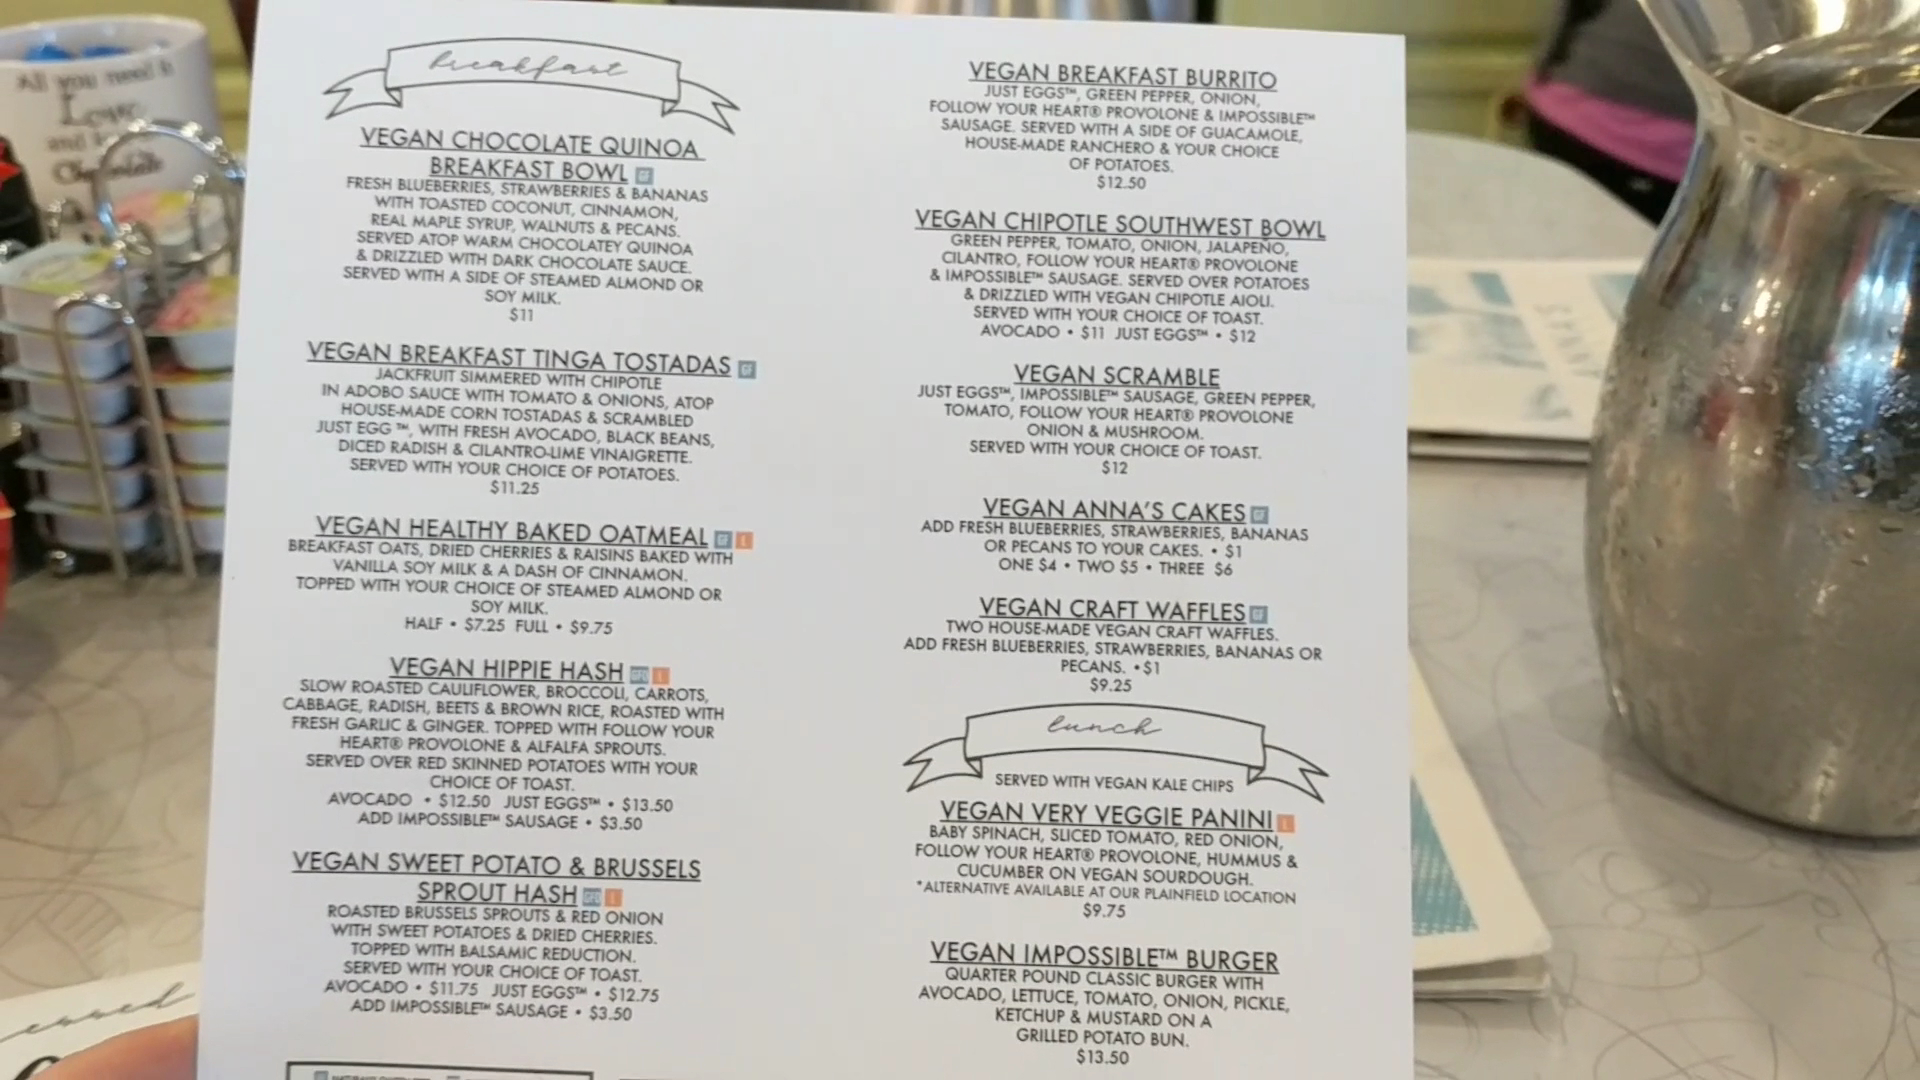 All you need is
Love
and
Chocolate
breakfast
VEGAN CHOCOLATE QUINOA
BREAKFAST BOWL GF
FRESH BLUEBERRIES, STRAWBERRIES & BANANAS
WITH TOASTED COCONUT, CINNAMON,
REAL MAPLE SYRUP, WALNUTS & PECANS.
SERVED ATOP WARM CHOCOLATEY QUINOA
& DRIZZLED WITH DARK CHOCOLATE SAUCE.
SERVED WITH A SIDE OF STEAMED ALMOND OR
SOY MILK.
$11
VEGAN BREAKFAST TINGA TOSTADAS GF
JACKFRUIT SIMMERED WITH CHIPOTLE
IN ADOBO SAUCE WITH TOMATO & ONIONS, ATOP
HOUSE-MADE CORN TOSTADAS & SCRAMBLED
JUST EGG ™, WITH FRESH AVOCADO, BLACK BEANS,
DICED RADISH & CILANTRO-LIME VINAIGRETTE.
SERVED WITH YOUR CHOICE OF POTATOES.
$11.25
VEGAN HEALTHY BAKED OATMEAL GF L
BREAKFAST OATS, DRIED CHERRIES & RAISINS BAKED WITH
VANILLA SOY MILK & A DASH OF CINNAMON.
TOPPED WITH YOUR CHOICE OF STEAMED ALMOND OR
SOY MILK.
HALF • $7.25 FULL • $9.75
VEGAN HIPPIE HASH GFO L
SLOW ROASTED CAULIFLOWER, BROCCOLI, CARROTS,
CABBAGE, RADISH, BEETS & BROWN RICE, ROASTED WITH
FRESH GARLIC & GINGER. TOPPED WITH FOLLOW YOUR
HEART® PROVOLONE & ALFALFA SPROUTS.
SERVED OVER RED SKINNED POTATOES WITH YOUR
CHOICE OF TOAST.
AVOCADO • $12.50 JUST EGGS™ • $13.50
ADD IMPOSSIBLE™ SAUSAGE • $3.50
VEGAN SWEET POTATO & BRUSSELS
SPROUT HASH GFO L
ROASTED BRUSSELS SPROUTS & RED ONION
WITH SWEET POTATOES & DRIED CHERRIES.
TOPPED WITH BALSAMIC REDUCTION.
SERVED WITH YOUR CHOICE OF TOAST.
AVOCADO • $11.75 JUST EGGS™ • $12.75
ADD IMPOSSIBLE™ SAUSAGE • $3.50
VEGAN BREAKFAST BURRITO
JUST EGGS™, GREEN PEPPER, ONION,
FOLLOW YOUR HEART® PROVOLONE & IMPOSSIBLE™
SAUSAGE. SERVED WITH A SIDE OF GUACAMOLE,
HOUSE-MADE RANCHERO & YOUR CHOICE
OF POTATOES.
$12.50
VEGAN CHIPOTLE SOUTHWEST BOWL
GREEN PEPPER, TOMATO, ONION, JALAPEÑO,
CILANTRO, FOLLOW YOUR HEART® PROVOLONE
& IMPOSSIBLE™ SAUSAGE. SERVED OVER POTATOES
& DRIZZLED WITH VEGAN CHIPOTLE AIOLI.
SERVED WITH YOUR CHOICE OF TOAST.
AVOCADO • $11 JUST EGGS™ • $12
VEGAN SCRAMBLE
JUST EGGS™, IMPOSSIBLE™ SAUSAGE, GREEN PEPPER,
TOMATO, FOLLOW YOUR HEART® PROVOLONE
ONION & MUSHROOM.
SERVED WITH YOUR CHOICE OF TOAST.
$12
VEGAN ANNA'S CAKES GF
ADD FRESH BLUEBERRIES, STRAWBERRIES, BANANAS
OR PECANS TO YOUR CAKES. • $1
ONE $4 • TWO $5 • THREE $6
VEGAN CRAFT WAFFLES GF
TWO HOUSE-MADE VEGAN CRAFT WAFFLES.
ADD FRESH BLUEBERRIES, STRAWBERRIES, BANANAS OR
PECANS. •$1
$9.25
lunch
SERVED WITH VEGAN KALE CHIPS
VEGAN VERY VEGGIE PANINI L
BABY SPINACH, SLICED TOMATO, RED ONION,
FOLLOW YOUR HEART® PROVOLONE, HUMMUS &
CUCUMBER ON VEGAN SOURDOUGH.
*ALTERNATIVE AVAILABLE AT OUR PLAINFIELD LOCATION
$9.75
VEGAN IMPOSSIBLE™ BURGER
QUARTER POUND CLASSIC BURGER WITH
AVOCADO, LETTUCE, TOMATO, ONION, PICKLE,
KETCHUP & MUSTARD ON A
GRILLED POTATO BUN.
$13.50